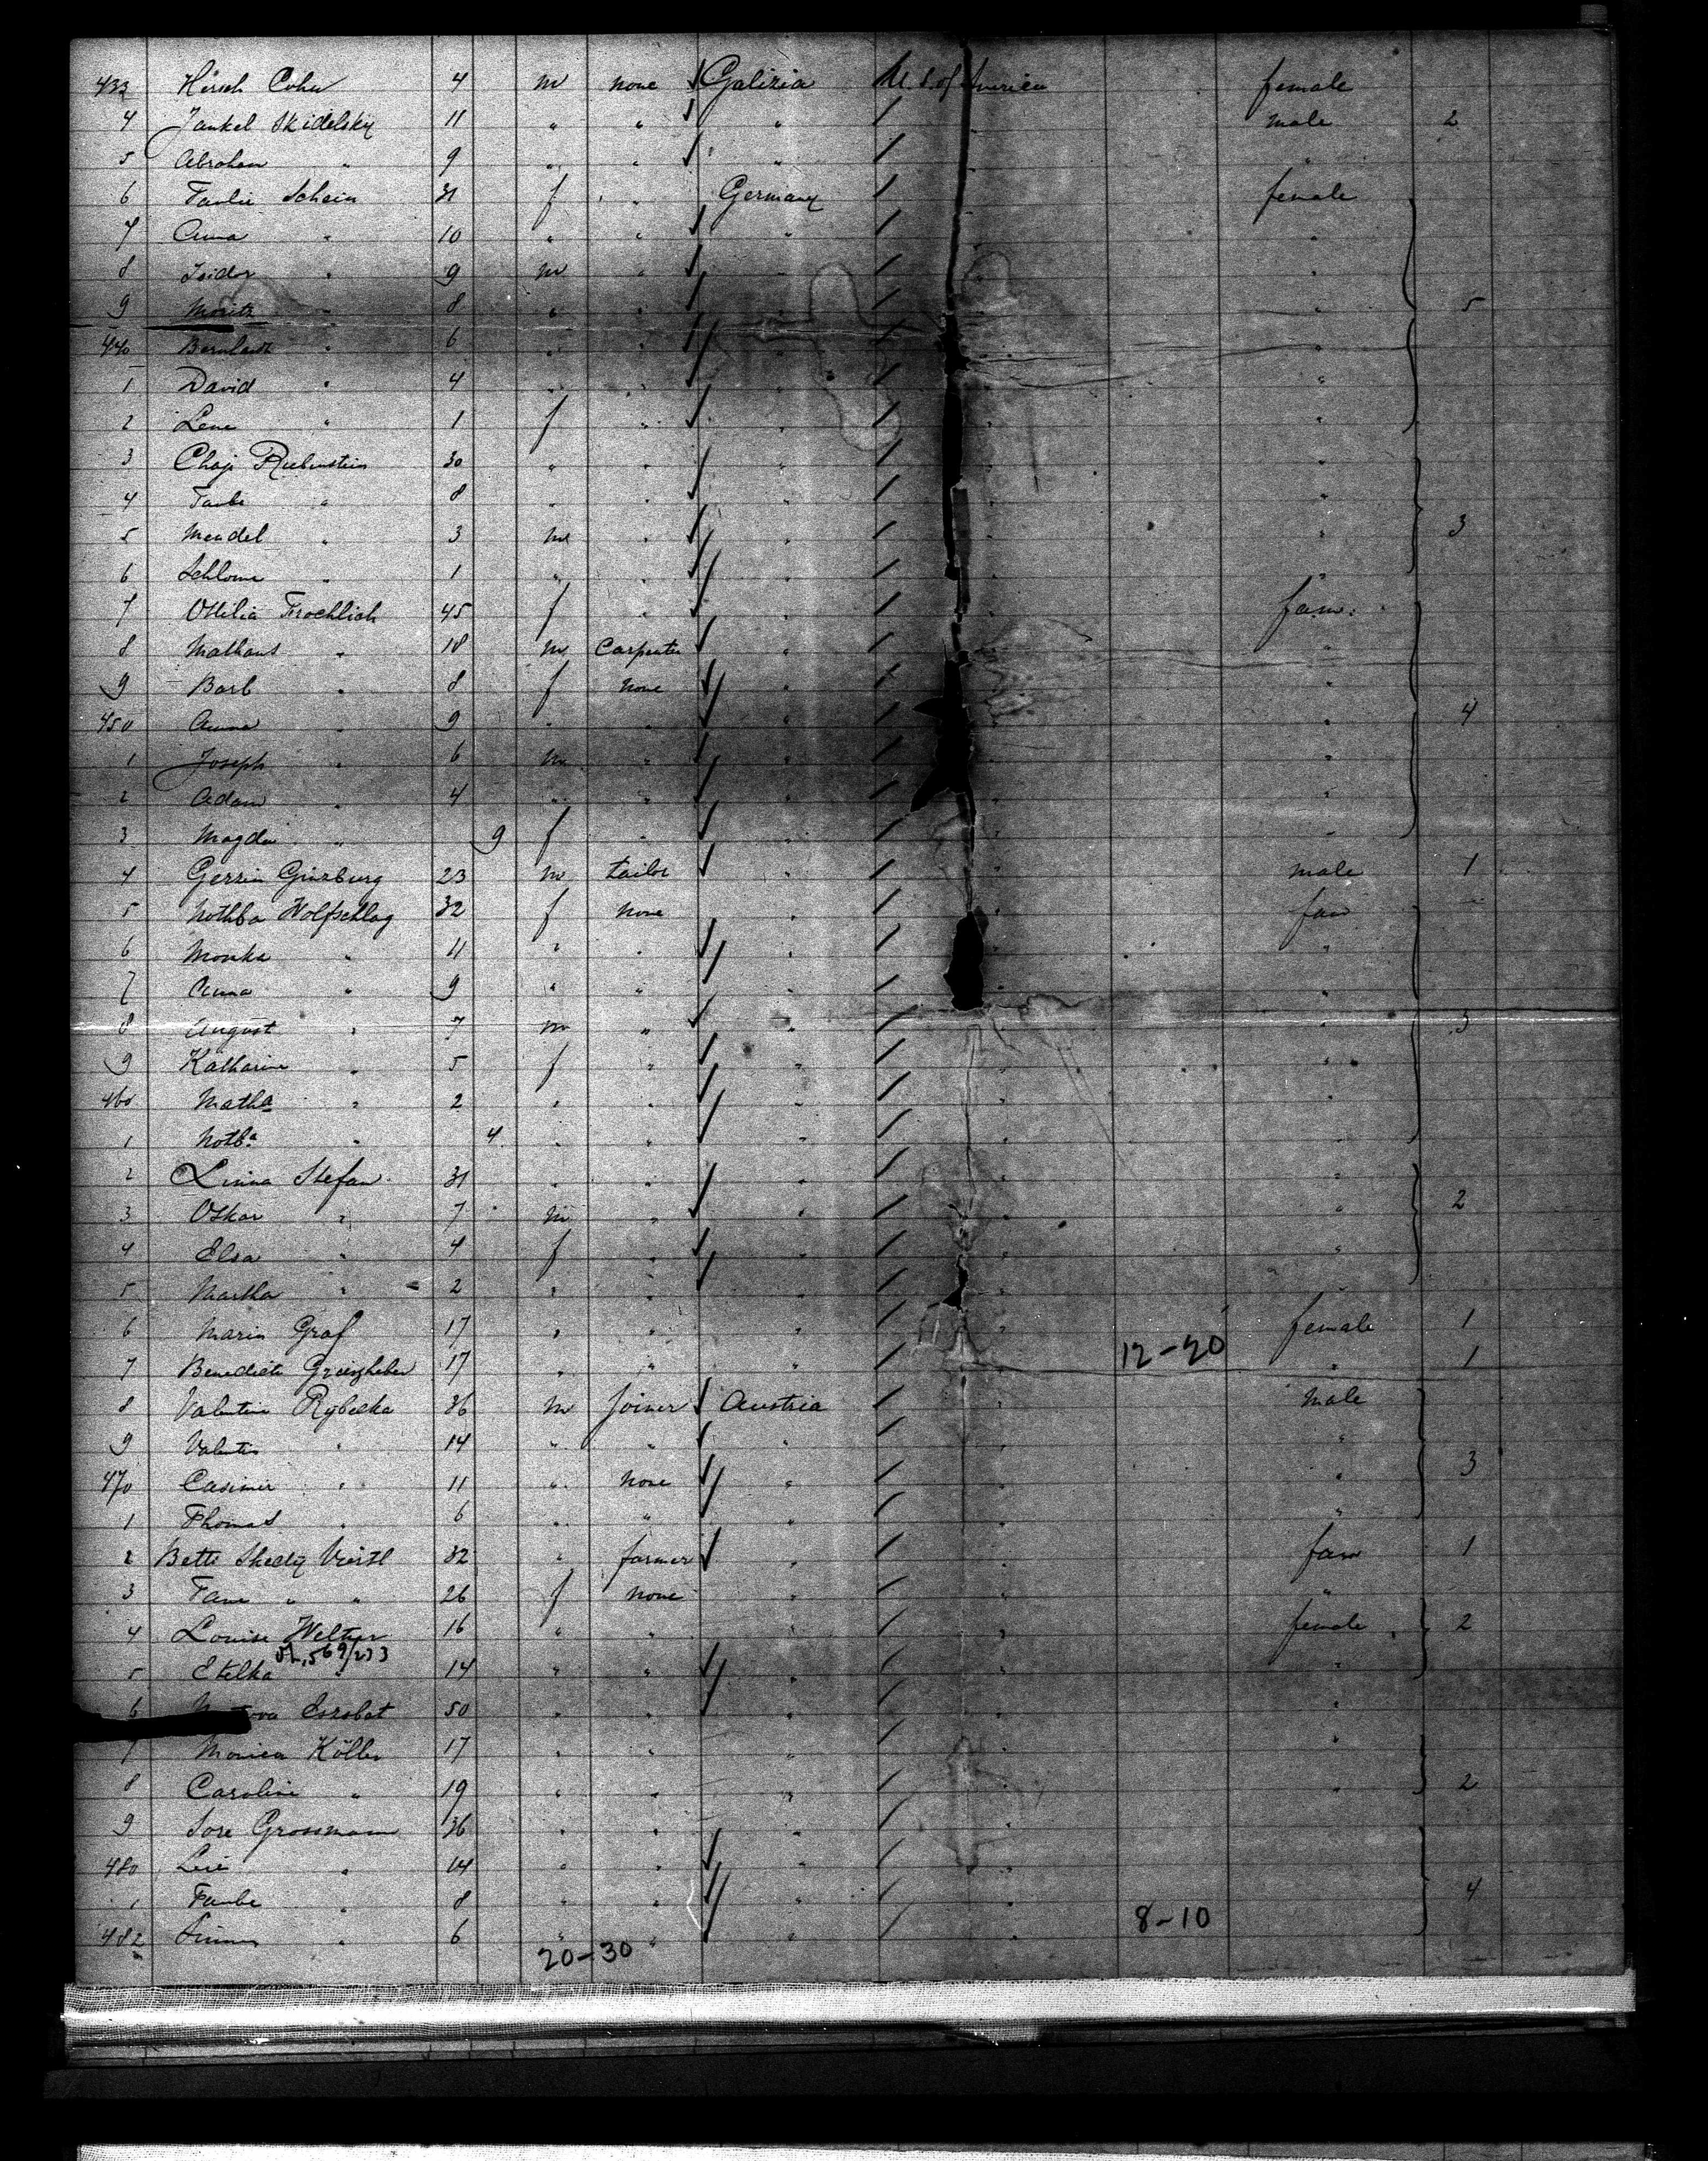 433 Hirsch Cohn 4 m none Galizia U. S. of America female
4 Jankel Skidelsky 11 " " " male 2
5 Abraham " 9 " " " "
6 Schein 31 f " Germany female
7 Anna " 10 " " " "
8 Isidor " 9 m " " "
9 Moritz " 8 " " " " 5
440 Bernhard " 6 " " " "
1 David " 4 " " " "
2 Lene " 1 f " " "
3 Chaje Rubenstein 30 " " " "
4 Taube " 8 " " " "
5 Mendel " 3 m " " " 3
6 Schlome " 1 " " " "
7 Ottilia Froehlich 45 f " " fam.
8 Mathaus " 18 m Carpenter " "
9 Barb " 8 f none " "
450 Anna " 9 " " " " 4
1 Joseph " 6 m " " "
2 Adam " 4 " " " "
3 Magda " 9 f " " "
4 Ginzburg 23 m tailor " male 1
5 Nothba Wolfschlag 32 f none " fam
6 Monika " 11 " " " "
7 Anna " 9 " " " "
8 August " 7 m " " " 3
9 Katharine " 5 f " " "
460 Matha " 2 " " " "
1 Nothba " 4 " " " "
2 Linna Stefan 31 " " " "
3 Oskar " 7 m " " " 2
4 Elsa " 4 f " " "
5 Martha " 2 " " " "
6 Marin Graf 17 " " " female 1
12-20
7 17 " " " " 1
8 Valentin Rybecka 36 m joiner Austria male
9 Valentin " 14 " " " "
470 Casimir " 11 " none " " 3
1 Thomas " 6 " " " "
2 Bette 32 " farmer " fam 1
3 " " 26 f none " "
4 Louise Welter 16 " " " female 2
5 Etelka " 14 " " " "
6 50 " " " "
7 Monica Köller 17 " " " "
8 Caroline " 19 " " " " 2
9 Sore Grossmann 36 " " "
480 " 14 " " "
1 Taube " 8 " " " 4
8-10
482 " 6 " " "
20-30